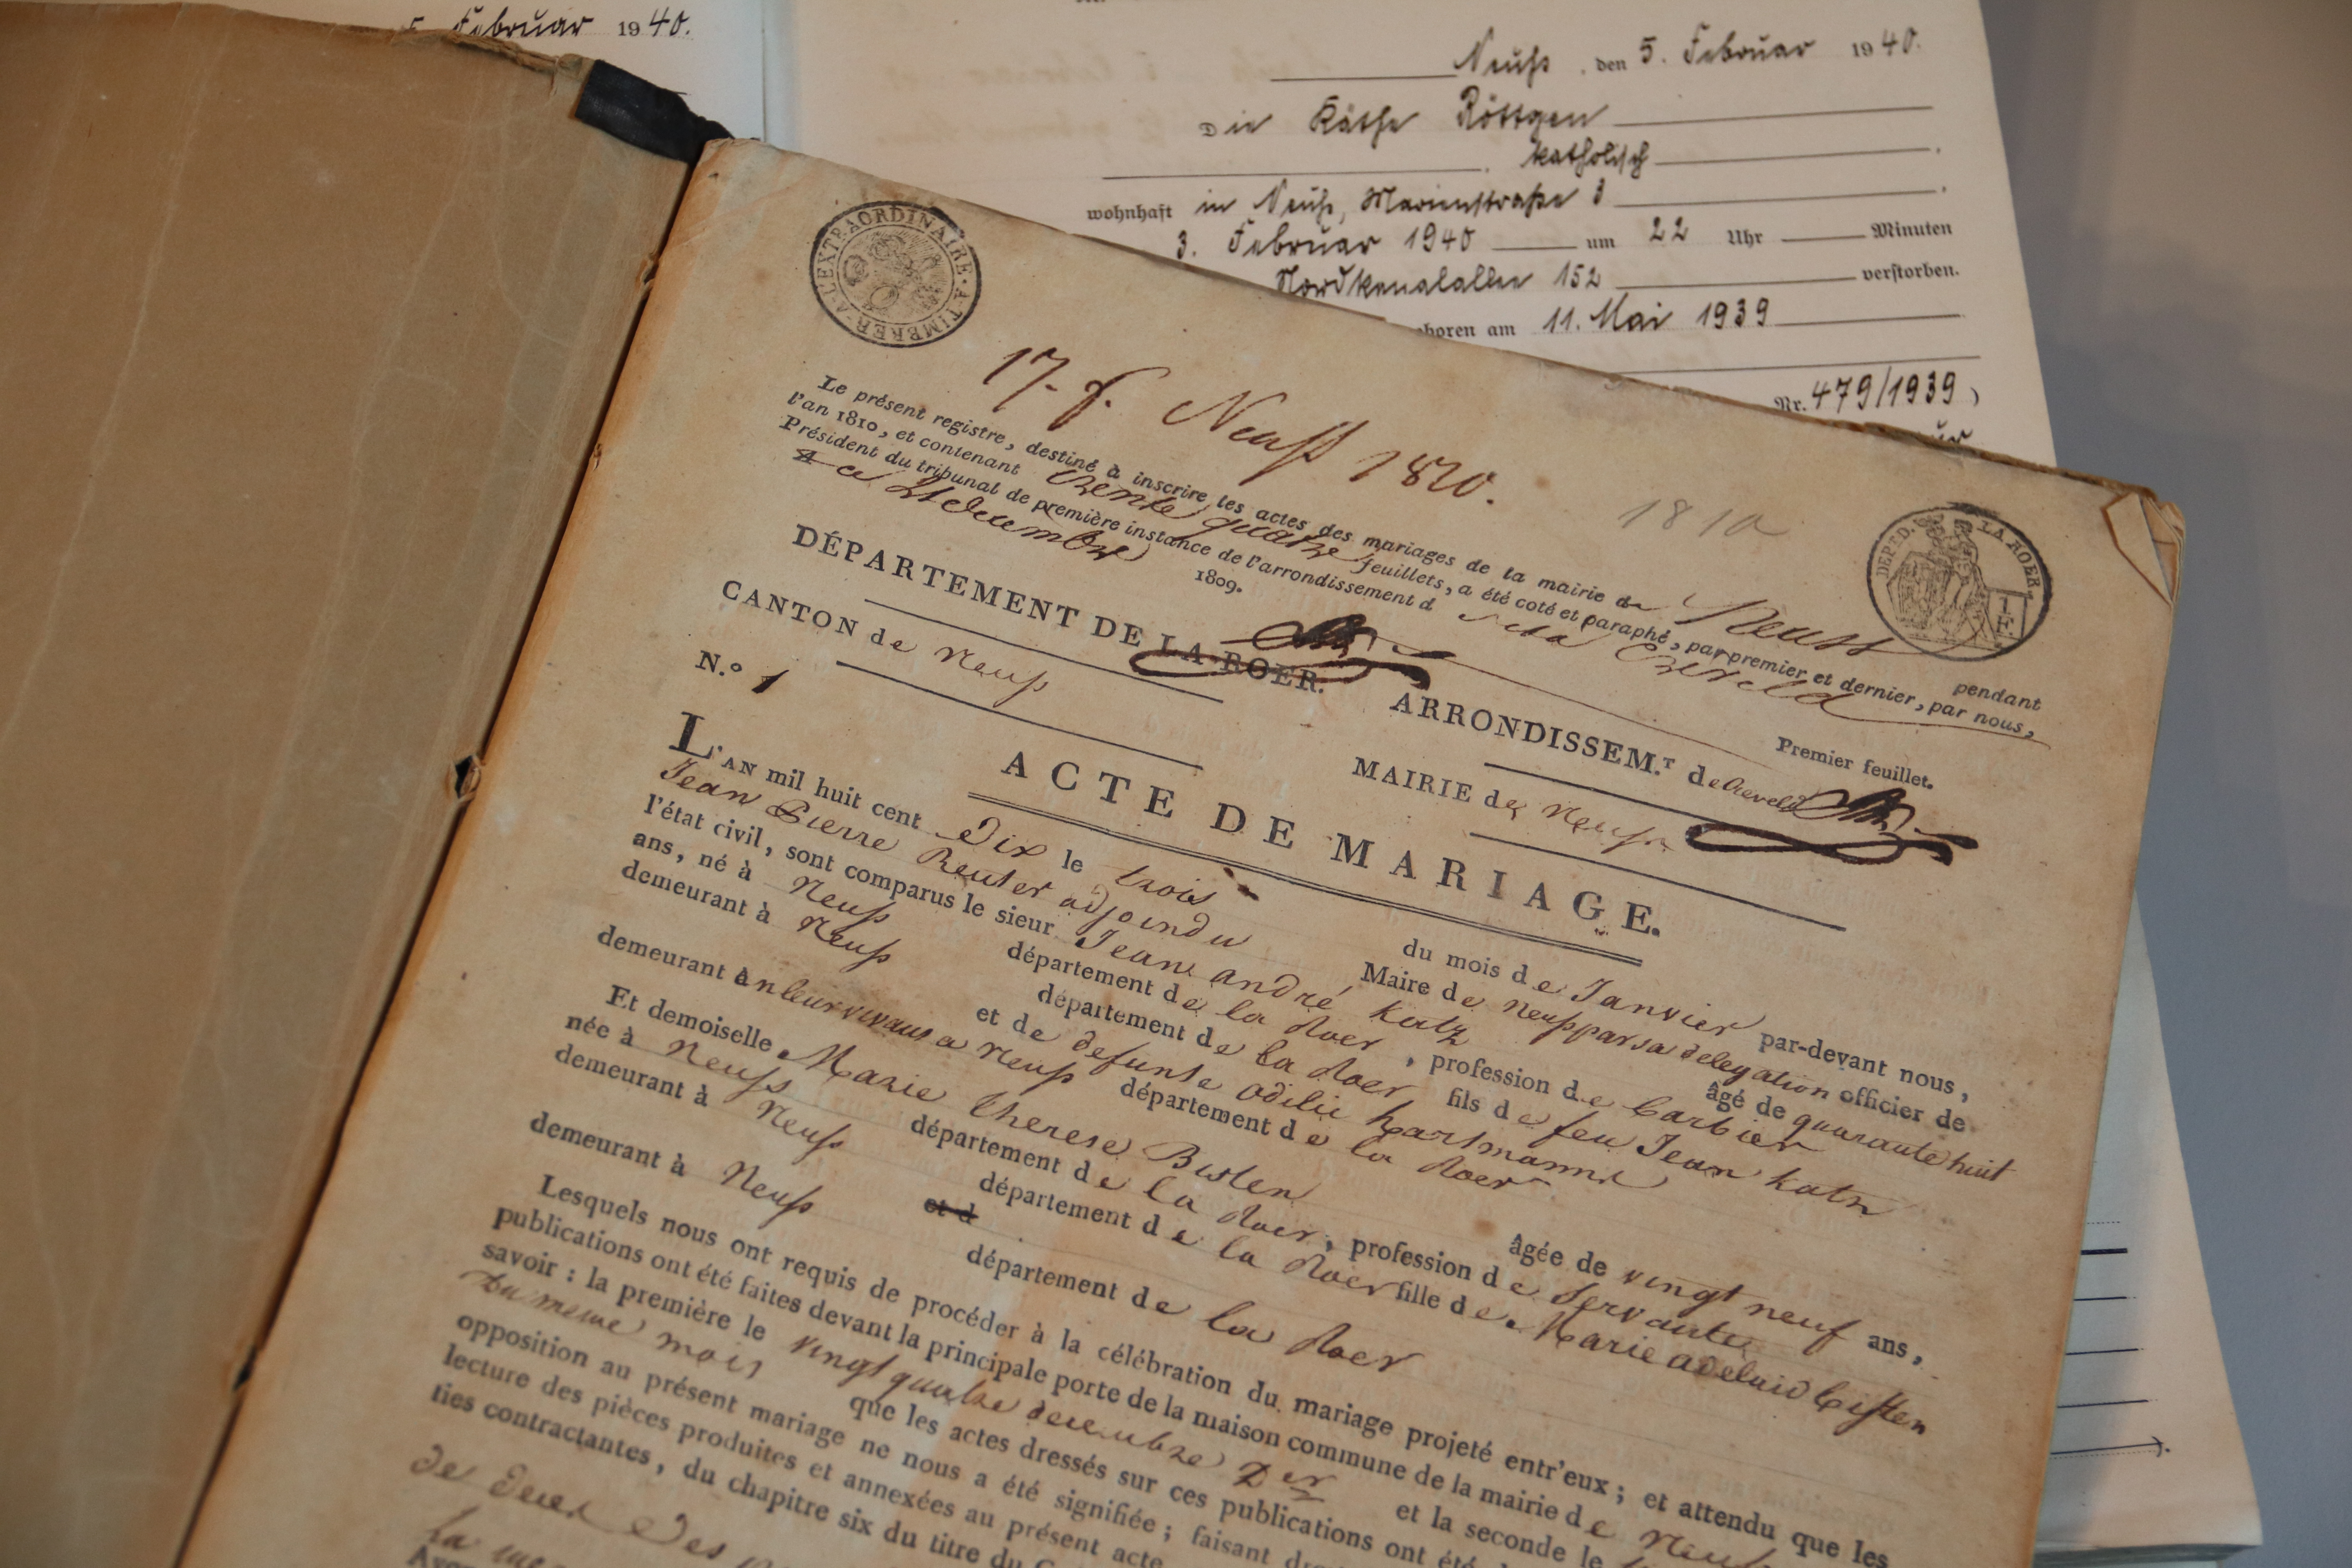 5. Februar 1940.
Neuß, den 5. Februar 1940.
Die Käthe Röttgen
katholisch
wohnhaft in Neuß, Marienstraße
3. Februar 1940 um 22 Uhr Minuten
Nordkanalallee 152 verstorben.
boren am 11. Mai 1939
Nr. 479/1939)
A L'EXTRAORDINAIRE. A TIMBRER.
DEP.T D. LA ROER.
1 F.
Neuss 1810.
1810
Le présent registre, destiné à inscrire les actes des mariages de la mairie de Neuss pendant
l'an 1810, et contenant trente quatre feuillets, a été coté et paraphé, par premier et dernier, par nous,
Président du tribunal de première instance de l'arrondissement d Creveld
ce decembre 1809.
Premier feuillet.
DÉPARTEMENT DE LA ROER. ARRONDISSEM.T de Creveld
CANTON de Neuß MAIRIE de Neuß
N.o 1
ACTE DE MARIAGE.
L'AN mil huit cent Dix le trois du mois de Janvier par-devant nous,
Jean Pierre Reuter adjoind u Maire de Neuß par sa delegation officier de
l'état civil, sont comparus le sieur Jean andré Katz âgé de quarante huit
ans, né à Neuß département de la Roer, profession de barbier
demeurant à Neuß département de la Roer fils de feu Jean Katz
et de defunte odilie hartmann
demeurant en leur vivans a Neuß département de la Roer
Et demoiselle Marie therese Bisten âgée de vingt neuf ans,
née à Neuß département de la Roer, profession de Servante
demeurant à Neuß département de la Roer fille de Marie adelaid bisten
et d
demeurant à Neuß département de la Roer
Lesquels nous ont requis de procéder à la célébration du mariage projeté entr'eux; et attendu que les
publications ont été faites devant la principale porte de la maison commune de la mairie de Neuß
savoir: la première le vingt quatre decembre et la seconde le
du meme mois que les actes dressés sur ces publications ont été
opposition au présent mariage ne nous a été signifiée; faisant
lecture des pièces produites et annexées au présent acte
ties contractantes, du chapitre six du titre du
de des
la